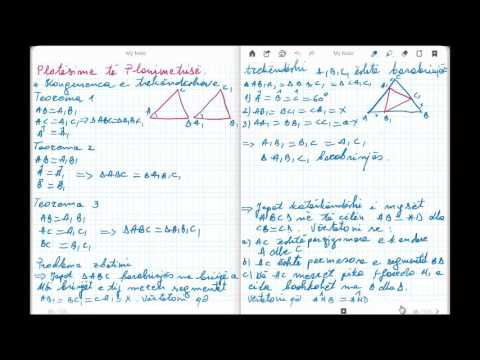 My Note
Plotësime të Planimetrisë.
Kongruenca e trekëndëshave
Teorema 1
AB = A₁B₁
AC = A₁C₁ ⇒ ΔABC = ΔA₁B₁C₁
Â = Â₁
C
C₁
A
B
A₁
B₁
Teorema 2
AB = A₁B₁
Â = Â₁ ⇒ ΔABC = ΔA₁B₁C₁
B̂ = B̂₁
Teorema 3
AB = A₁B₁
AC = A₁C₁ ⇒ ΔABC = ΔA₁B₁C₁
BC = B₁C₁
Problema zbatimi
⇒ Jepet ΔABC barabrinjës me brinjë a
Mbi brinjët e tij merren segmentët
AB₁ = BC₁ = CA₁ = x. Vërtetoni që
My Note
trekëndëshi A₁B₁C₁ është barabrinjës
ΔAB₁A₁ = ΔBB₁C₁ = ΔCA₁C₁
1) Â = B̂ = Ĉ = 60°
2) AB₁ = BC₁ = CA₁ = x
3) AA₁ = BB₁ = CC₁ = a-x
⇒ A₁B₁ = B₁C = A₁C₁
ΔA₁B₁C₁ barabrinjës.
⇒ Jepet katërkëndëshi i mysët
ABCD në të cilën AB = AD dhe
CB = CD. Vërtetoni se:
a) AC është përgjysmore e këndeve
A dhe C
b) AC është përmesore e segmentit BD
c) Në AC merret pika çfarëdo M, e
cila bashkohet me B dhe D.
Vërtetoni që AM̂B = AM̂D